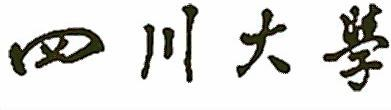 四川大學